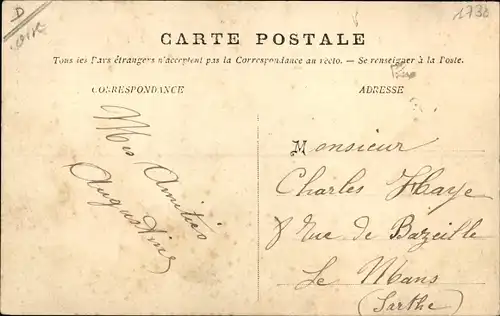 D
1730
CARTE POSTALE
Tous les Pays étrangers n'acceptent pas la Correspondance au recto. — Se renseigner à la Poste.
CORRESPONDANCE
ADRESSE
Mes Amitiés
Augustine
Monsieur
Charles Haye
8 Rue de Bazeille
Le Mans
(Sarthe)